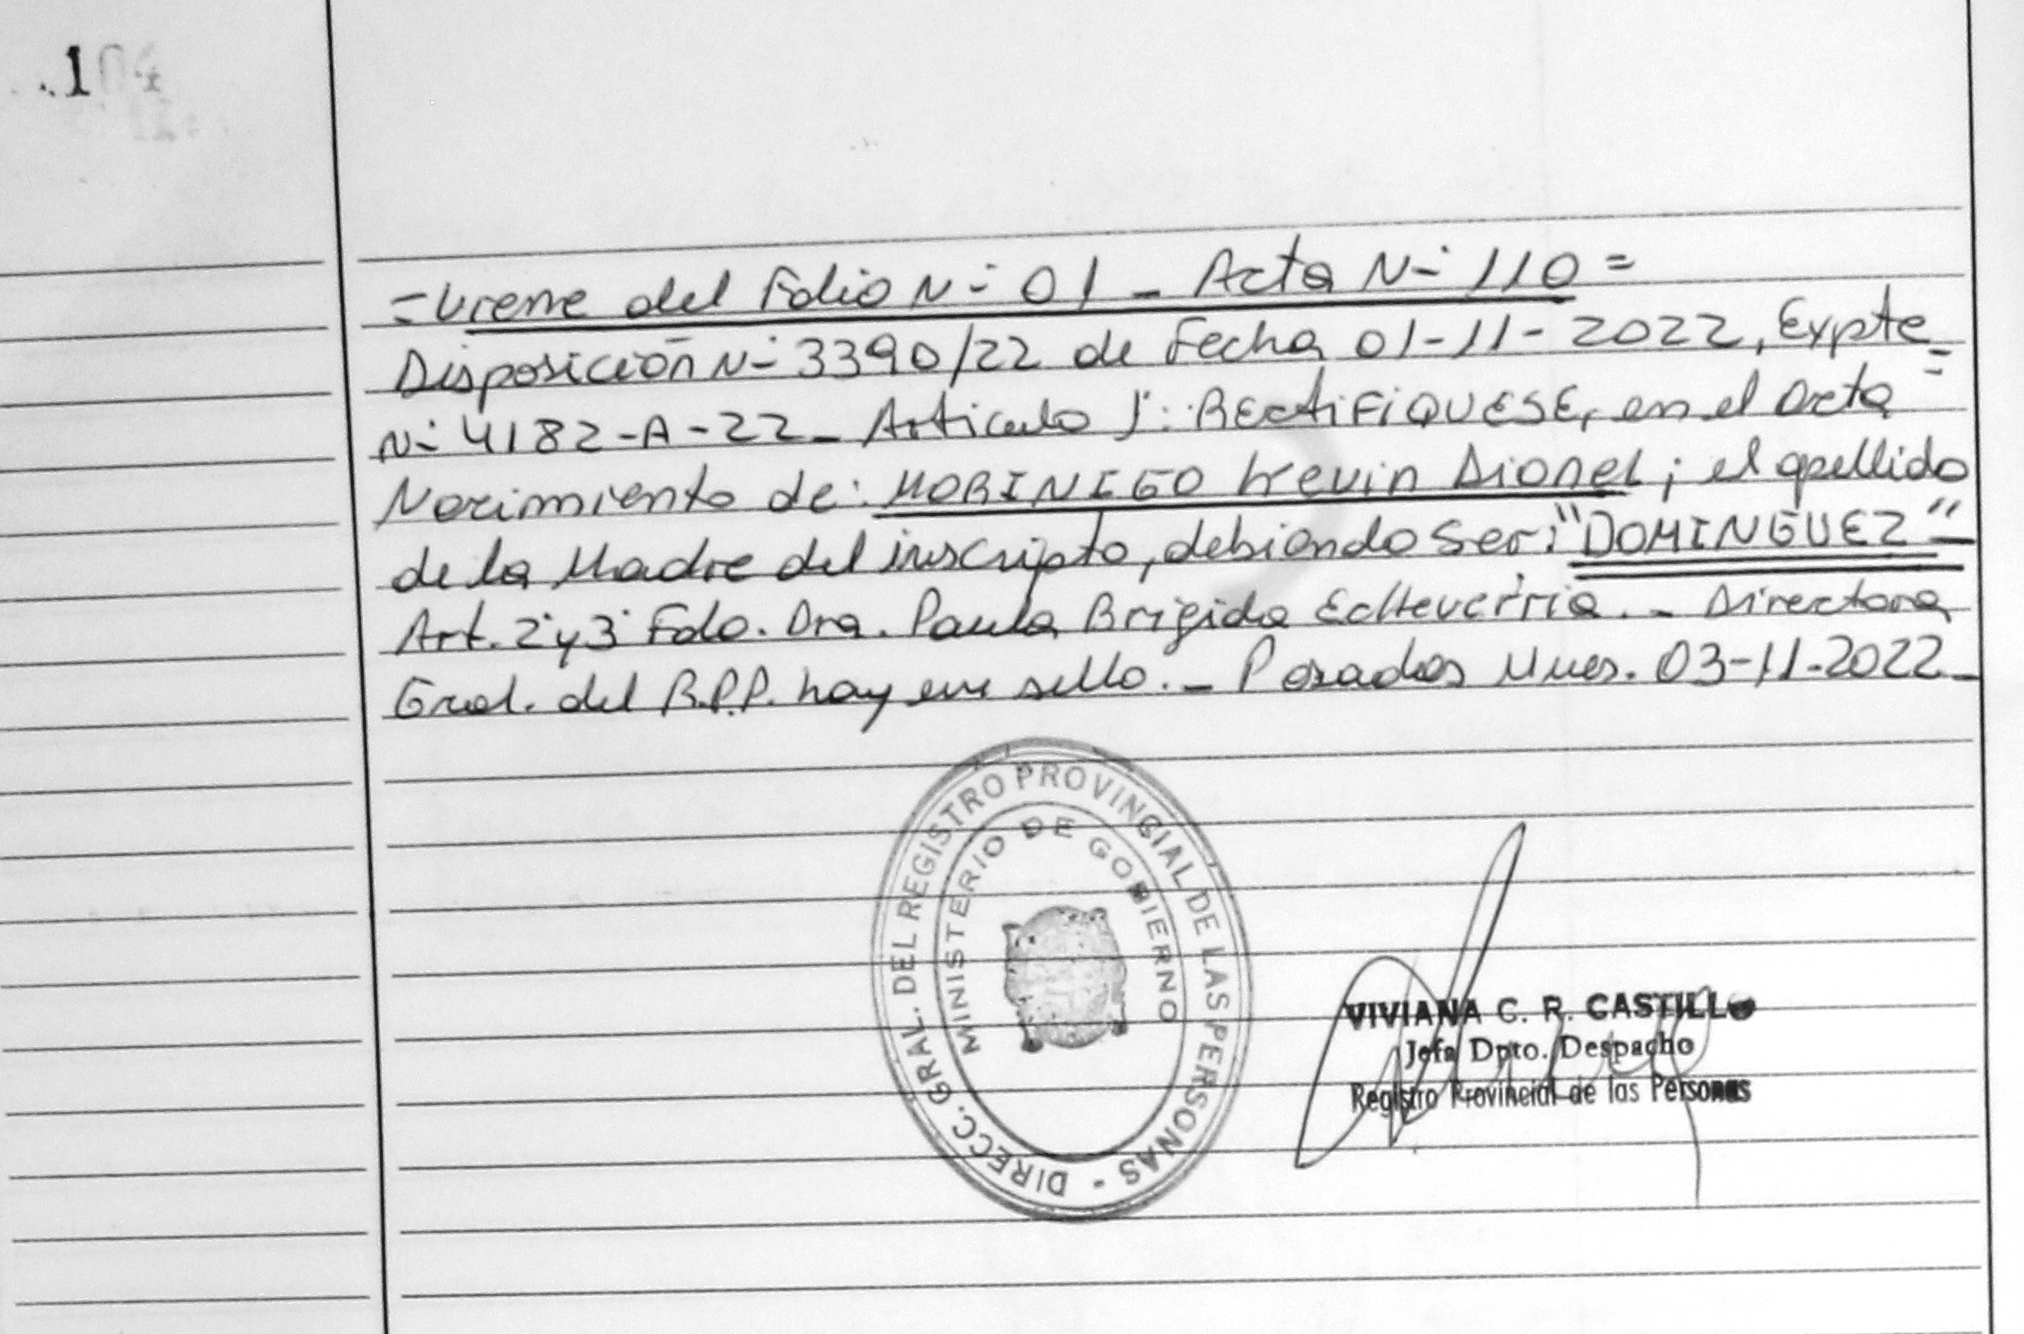 .1
=Viene del Folio N- 01 - Acta N- 110 =
Disposición N- 3390/22 de Fecha 01-11-2022, Expte=
N- 4182-A-22- Articulo 1°: RECTIFIQUESE, en el acta
Nacimiento de: MORINIGO Kevin Dionel; el apellido
de la Madre del inscripto, debiendo ser: "DOMINGUEZ"-
Art. 2° y 3° Fdo. Dra. Paula Brigida Echeverria.- Directora
Gral. del R.P.P. hay un sello.- Posadas Mnes. 03-11-2022-
DIRECC. GRAL. DEL REGISTRO PROVINCIAL DE LAS PERSONAS -
MINISTERIO DE GOBIERNO
VIVIANA C. R. CASTILLO
Jefa Dpto. Despacho
Registro Provincial de las Personas